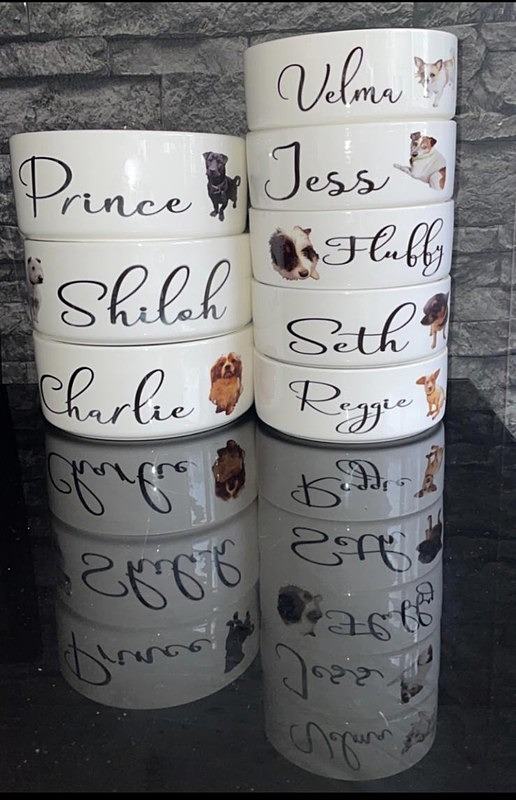 Prince
Shiloh
Charlie
Velma
Jess
Fluffy
Seth
Reggie